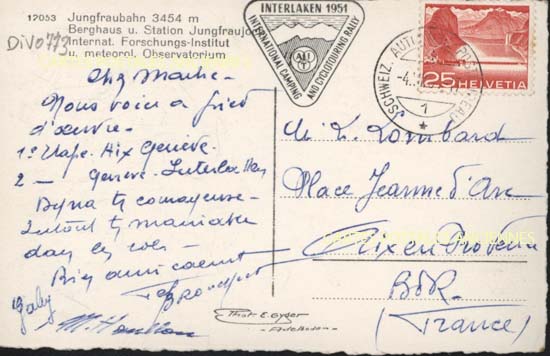 12053 Jungfraubahn 3454 m
Berghaus u. Station Jungfraujoch
Internat. Forschungs-Institut
u. meteorol. Observatorium
DIV0773
INTERLAKEN 1951
INTERNATIONAL CAMPING
AND CYCLOTOURING RALLY
AIT
SCHWEIZ. AUTOMOBIL-POSTBUREAU
1
25 HELVETIA
Nous voici à pied
d'œuvre.
1e étape. Aix Genève.
2 — Genève. Interlaken
Dyna tj courageuse.
Surtout tj maniable
dans les cols.
Bien amicalement
Gaby
Lombard
Place Jeanne d'Arc
Aix en Provence
BdR.
(France)
Phot. E. Gyger
Adelboden